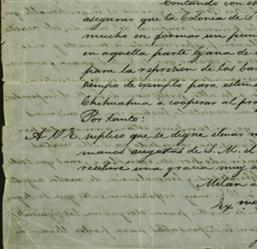 Contando con es
asegurar que la Colonia de S
mucho en formar un pun
en aquella parte lejana de
para la represion de los ba
tiempo de ejemplo para estim
Chihuahua à cooperar al pro
Por tanto:
A V.E. suplico que se digne elevar
manos augustas de S. M. el
recibire una gracia muy
Milan a
Ex mo